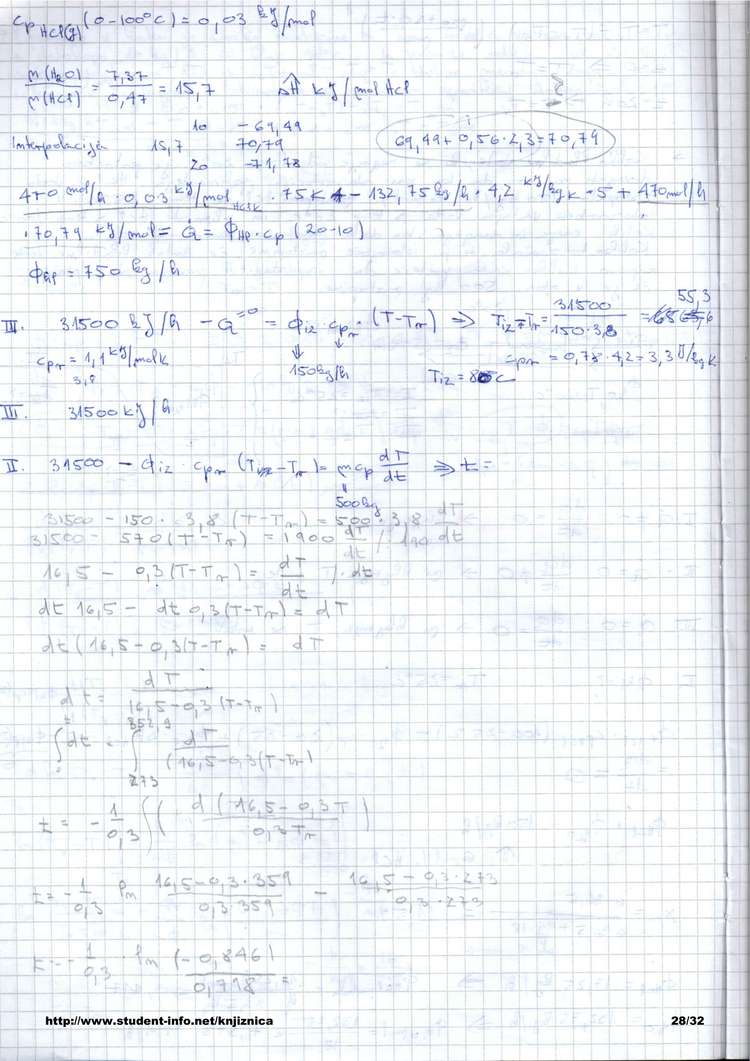 cp HCl(g) (0-100°C) = 0,03 kJ/mol
n(H2O) / n(HCl) = 7,37 / 0,47 = 15,7   ΔĤ kJ/mol HCl
10   -69,49
interpolacija   15,7   70,79
20   -71,78
69,49 + 0,56 · 2,3 = 70,79
470 mol/h · 0,03 kJ/mol HCl K · 75K - 132,75 kg/h · 4,2 kJ/kg K · 5 + 470 mol/h
· 70,79 kJ/mol = Q̇ = ΦHP · cp (20-10)
ΦHP = 750 kg/h
III.   31500 kJ/h - Q̇ =0 = Φiz · cpr · (T-Tr) ⇒ Tiz - Tr = 31500 / 150·3,8 = 55,3
cpr = 1,1 kJ/molK   150 kg/h   cpr = 0,78 · 4,2 = 3,3 J/kg K
3,8   Tiz = 80°C
III.   31500 kJ/h
II.   31500 - Φiz · cpr (Tiz - Tr) = m cp dT/dt ⇒ t =
500 kg
31500 - 150 · 3,8 (T-Tr) = 500 · 3,8 dT/dt
31500 - 570 (T-Tr) = 1900 dT/dt /: 190
16,5 - 0,3 (T-Tr) = dT/dt / · dt
dt 16,5 - dt 0,3 (T-Tr) = dT
dt (16,5 - 0,3 (T-Tr) = dT
dt = dT / 16,5 - 0,3 (T-Tr)
352,9
∫ dt = ∫ dT / (16,5 - 0,3 (T-Tr)
273
t = - 1/0,3 ∫ ( d (16,5 - 0,3 T / 0,3 Tr )
t = - 1/0,3 ln 16,5 - 0,3 · 359 / 0,3 · 359 - 16,5 - 0,3 · 273 / 0,3 · 273
t = - 1/0,3 · ln (-0,846) / 0,718 =
http://www.student-info.net/knjiznica   28/32